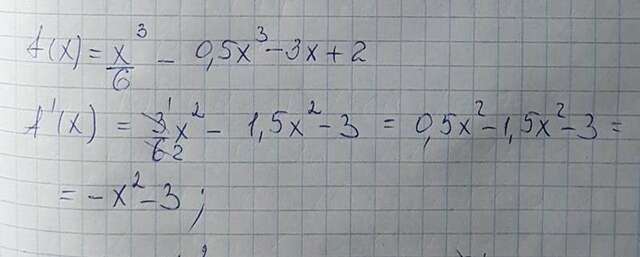 f(x) = x³/6 - 0,5x³ - 3x + 2
f'(x) = 3/6 x² - 1,5x² - 3 = 0,5x² - 1,5x² - 3 =
= -x² - 3;